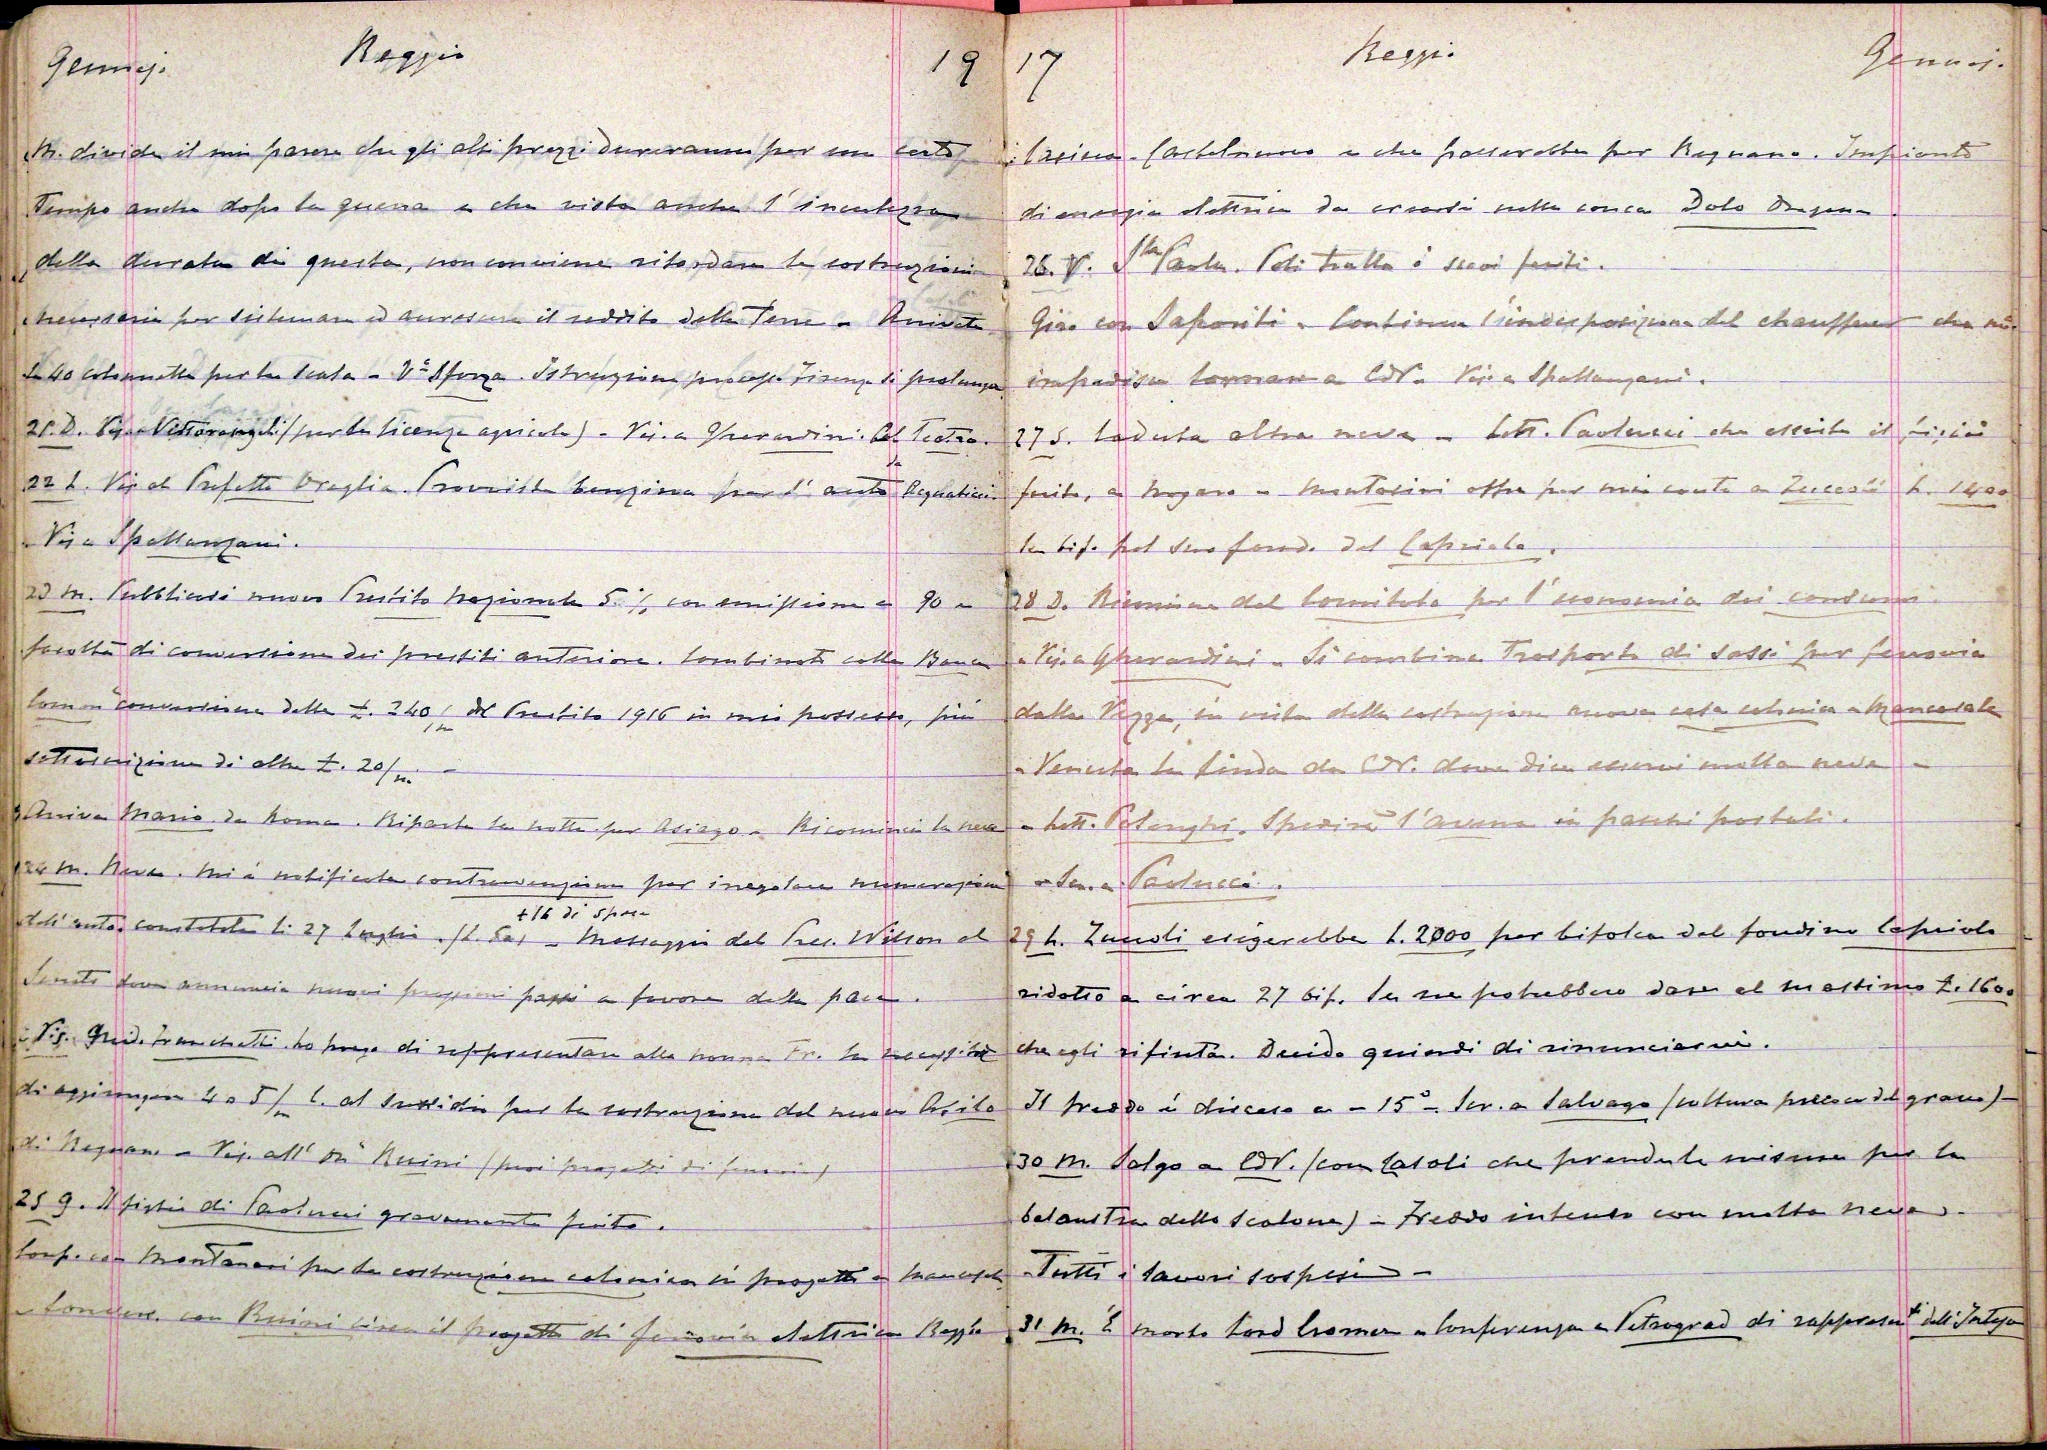 Gennaj. Reggio 19
M. divide il mio parere che gli alti prezzi dureranno per un certo
tempo anche dopo la guerra e che vista anche l'incertezza
della durata di questa, non conviene ritardare le costruzioni
necessarie per sistemare ed accrescere il reddito delle Terre - Arrivate
le 40 colonnette per la scala - Va Sforza. Istruzione Firenze di
21. D. Vis. (per la licenza agricola) - Vis. a Gherardini. Al Teatro.
22 L. Vis al Prefetto Oreglia. Provvista benzina per l'auto da
- Vis a Spallanzani.
23 M. Pubblicasi nuovo Prestito Nazionale 5 % con emissione a 90 e
facoltà di conversione dei prestiti anteriori. Combinato colla Banca
Comm conversione delle £. 240/m del Prestito 1916 in mio possesso, più
sottoscrizione di altre £. 20/m -
Arriva Mario da Roma. Riparte la notte per Asiago - Ricomincia la neve
24 M. Neve. Mi è notificata contravvenzione per irregolare numerazione
dell'auto constatata li 27 Luglio. (L. +16 di spese - Messaggio del Pres. Wilson al
Senato dove annuncia nuovi prossimi passi a favore della pace.
- Vis. Guid. Franchetti. Lo prego di rappresentare alla nonna Fr. la necessità
di aggiungere 4 o 5/m L. al sussidio per la costruzione del nuovo Asilo
di Regnano - Vis. all' On Ruini (suoi progetti di ferrovia)
25 G. Il figlio di Paolucci gravemente ferito.
Conf. con Montanari per la costruzione colonica in progetto a Mancasale
- Convers. con Ruini circa il progetto di ferrovia elettrica Reggio
17 Reggio Gennaj.
- Casina - Castelnuovo e che passerebbe per Regnano. Impianto
di energia elettrica da crearsi nella conca Dolo Dragone.
26. V. Sta Paola. Poli tratta i suoi feriti.
Giro con Saporiti - Continua l'indisposizione del chauffeur che mi
impedisce tornare a CdV. - Vis. a Spallanzani.
27 S. Caduta altra neve - Lett. Paolucci che assiste il figlio
ferito, a Nogaro - Montasini offre per mio conto a Zuccoli L. 1400
la bif. pel suo fond. del Capriolo.
28 D. Riunione del Comitato per l'economia dei consumi.
- Vis. a Gherardini - Si combina Trasporto di sassi per ferrovia
dalla Vezza, in vista della costruzione nuova casa colonica a Mancasale
- Venuta la Linda da CdV. dove dice esservi molta neve -
- Lett. Polenghi. Spedirà l'avena in pacchi postali.
- Scr. a Paolucci.
29 L. Zuccoli esigerebbe L. 2000 per bifolca del fondino Capriolo
ridotto a circa 27 bif. Se ne potrebbero dare al massimo £. 1600
che egli rifiuta. Decido quindi di rinunciarvi.
Il freddo è disceso a - 15° - Scr. a Salvago (coltura precoce del grano) -
30 M. Salgo a CdV. (con Casoli che prende le misure per la
balaustra dello scalone) - Freddo intenso con molta neve -
- Tutti i lavori sospesi -
31 M. È morto Lord Cromer - Conferenza a Petrograd di rappresenti dell'Intesa